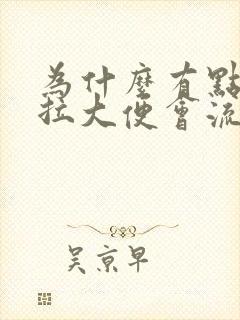 為什麼有點
拉大便會流
吳京早